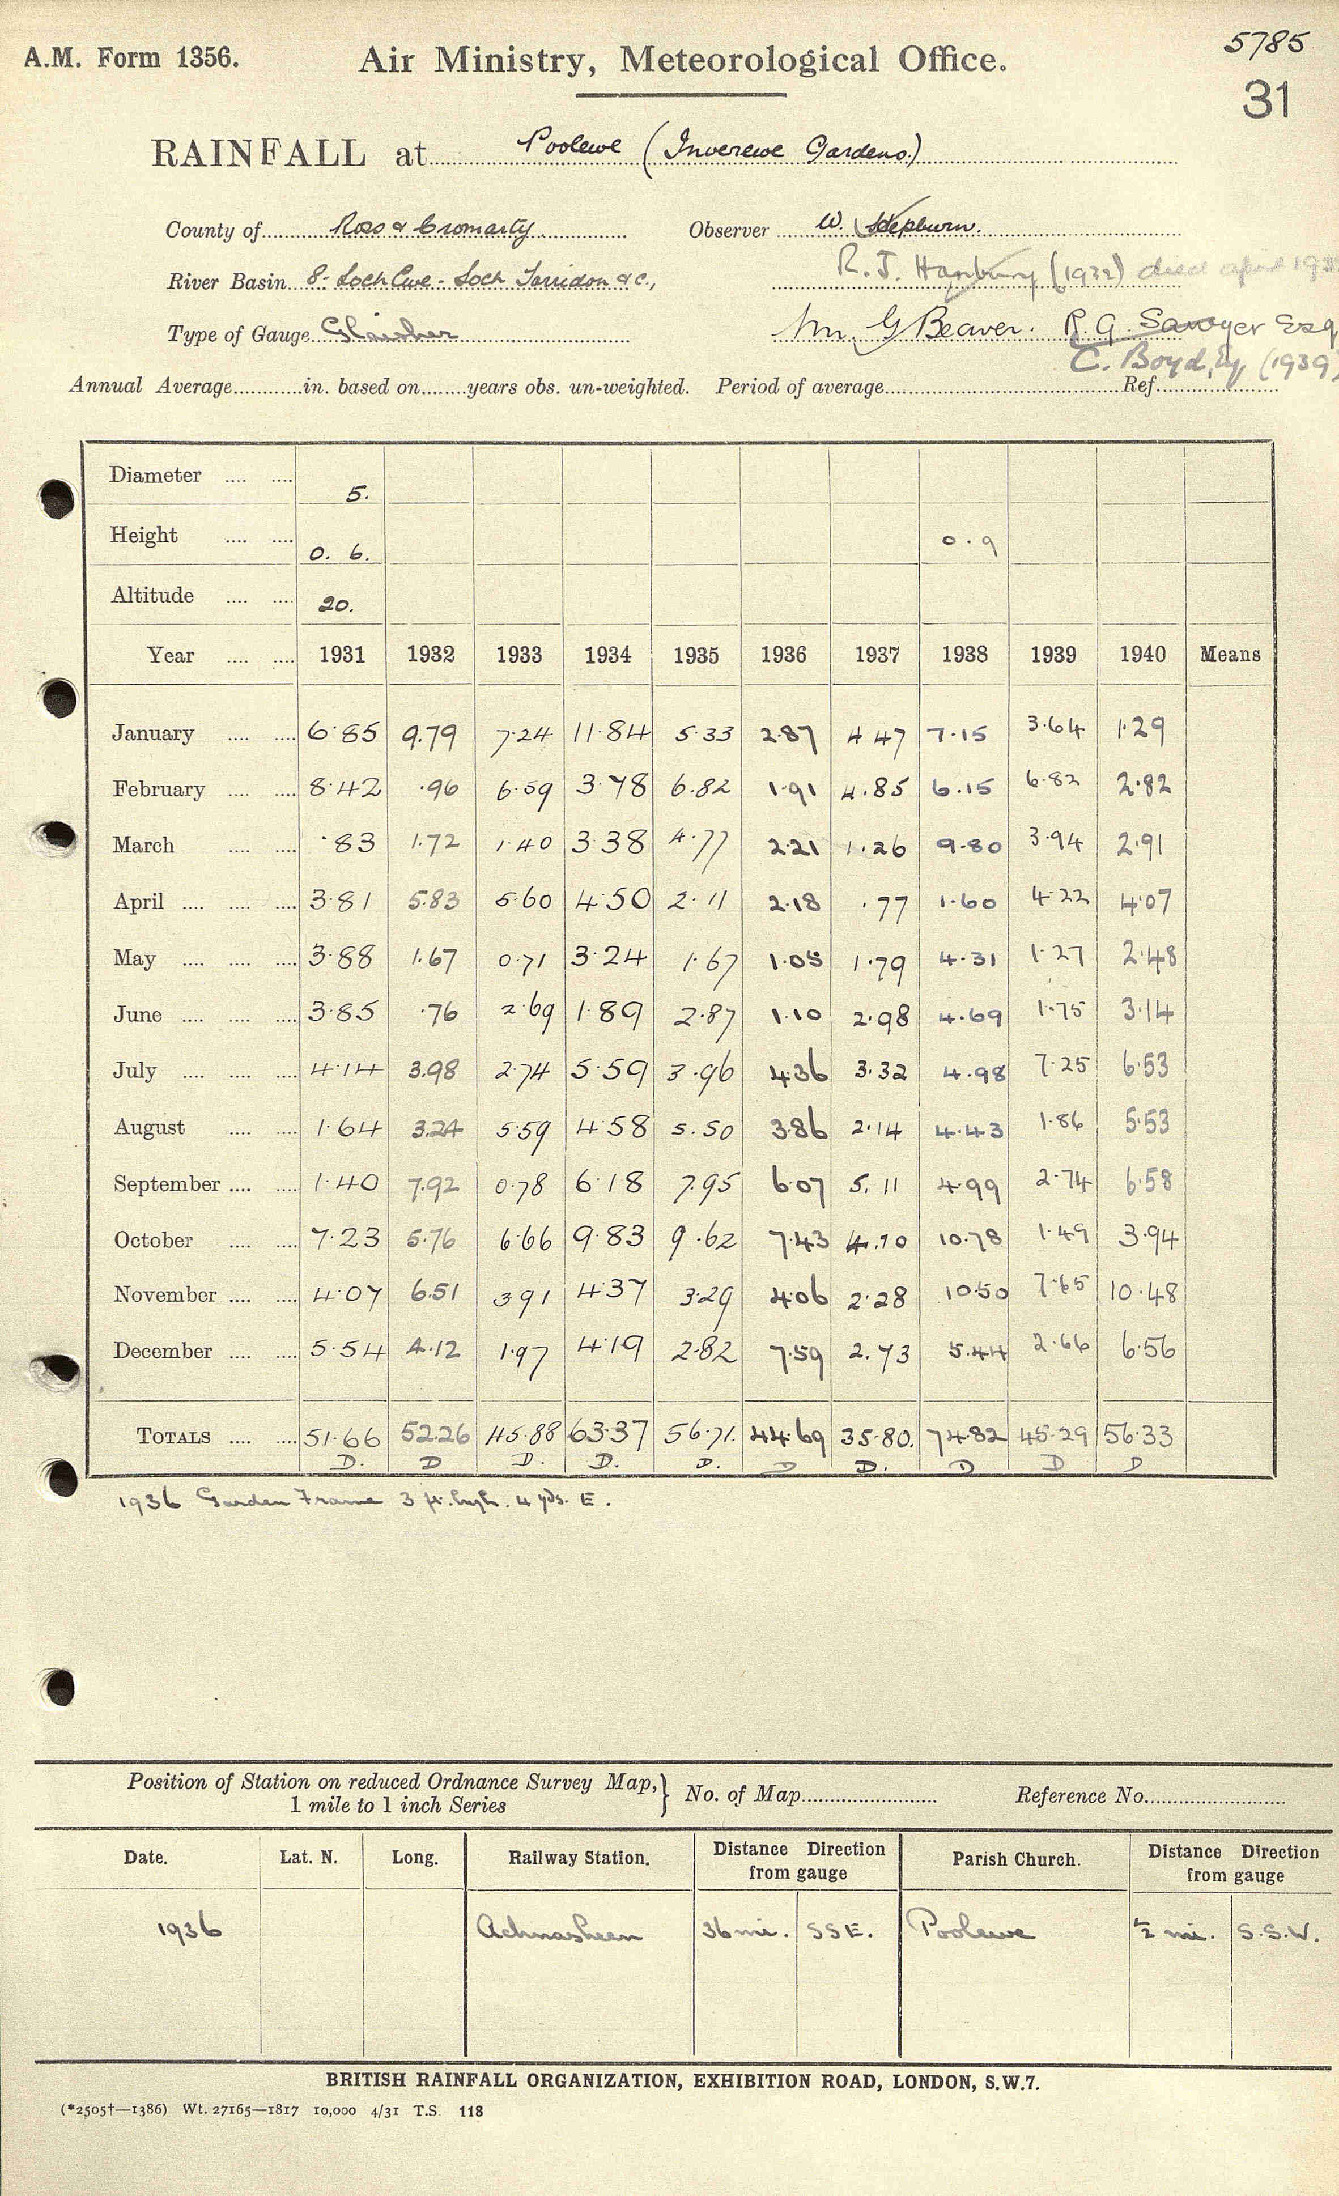 A.M. Form 1356. Air Ministry, Meteorological Office. 5785
31
RAINFALL at Poolewe (Inverewe Gardens.)
County of Ross & Cromarty Observer W. Hepburn.
River Basin 8- Loch Ewe - Loch Torridon &c., R. J. Hanbury (1932) died april 193
Type of Gauge Glaisher G Beaver. R. G. Sawyer Esq
C. Boyd, Esq (1939)
Annual Average in. based on years obs. un-weighted. Period of average Ref.
Diameter 5.
Height 0. 6. 0.9
Altitude 20.
Year 1931 1932 1933 1934 1935 1936 1937 1938 1939 1940 Means
January 6.85 9.79 7.24 11.84 5.33 2.87 4.47 7.15 3.64 1.29
February 8.42 .96 6.59 3.78 6.82 1.91 4.85 6.15 6.82 2.82
March .83 1.72 1.40 3.38 4.77 2.21 1.26 9.80 3.94 2.91
April 3.81 5.83 5.60 4.50 2.11 2.18 .77 1.60 4.22 4.07
May 3.88 1.67 0.71 3.24 1.67 1.05 1.79 4.31 1.27 2.48
June 3.85 .76 2.69 1.89 2.87 1.10 2.98 4.69 1.75 3.14
July 4.14 3.98 2.74 5.59 3.96 4.36 3.32 4.98 7.25 6.53
August 1.64 3.24 5.59 4.58 5.50 3.86 2.14 4.43 1.86 5.53
September 1.40 7.92 0.78 6.18 7.95 6.07 5.11 4.99 2.74 6.58
October 7.23 5.76 6.66 9.83 9.62 7.43 4.10 10.78 1.49 3.94
November 4.07 6.51 3.91 4.37 3.29 4.06 2.28 10.50 7.65 10.48
December 5.54 4.12 1.97 4.19 2.82 7.59 2.73 5.44 2.66 6.56
TOTALS 51.66 52.26 45.88 63.37 56.71. 44.69 35.80. 74.82 45.29 56.33
D. D D. D. D. D D. D D D
1936 Garden Frame 3 ft. high. 4 yds. E.
Position of Station on reduced Ordnance Survey Map, 1 mile to 1 inch Series } No. of Map Reference No.
Date. Lat. N. Long. Railway Station. Distance Direction from gauge Parish Church. Distance Direction from gauge
1936 Achnasheen 36 mi. SSE. Poolewe ½ mi. S.S.W.
BRITISH RAINFALL ORGANIZATION, EXHIBITION ROAD, LONDON, S.W.7.
(*2505†—1386) Wt. 27165—1817 10,000 4/31 T.S. 118